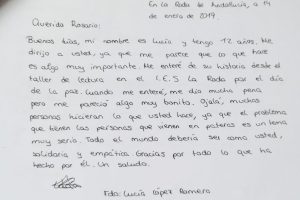 En La Roda de Andalucía, a 14
de enero de 2019.
Querida Rosario:
Buenos días, mi nombre es Lucía y tengo 12 años. Me
dirijo a usted, ya que me parece que lo que hace
es algo muy importante. Me enteré de su historia desde el
taller de lectura en el I.E.S La Roda por el día
de la paz. Cuando me enteré, me dio mucha pena
pero me pareció algo muy bonito. Ojalá, muchas
personas hicieran lo que usted hace, ya que el problema
que tienen las personas que vienen en pateras es un tema
muy serio. Todo el mundo debería ser como usted,
solidaria y empática. Gracias por todo lo que ha
hecho por Él. Un saludo.
Fdo: Lucía López Romero